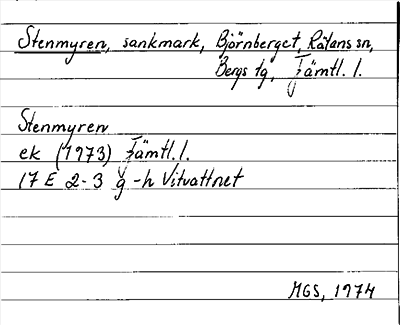 Stenmyren, sankmark, Björnberget, Rätans sn,
Bergs tg, Jämtl. l.
Stenmyren
ek (1973) Jämtl. l.
17 E 2-3 g-h Vitvattnet
MGS, 1974